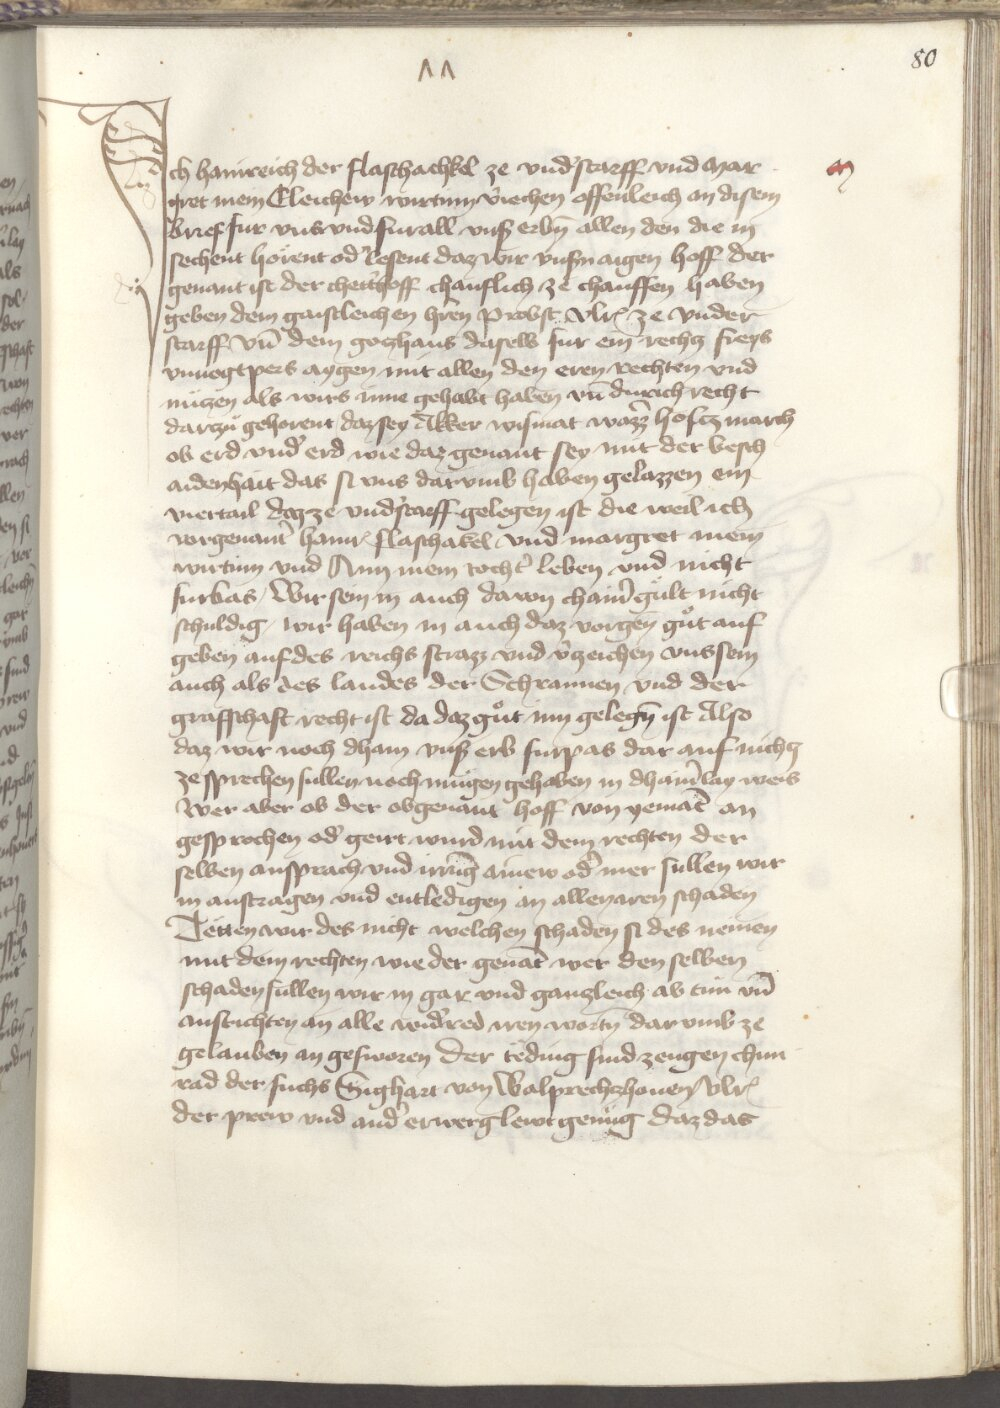 80
Ich hainreich der flaschachkel ze vnd'starff vnd Mar
gret mein Eleichew wirtinn v'iechen offenleich an disem
brief fur vns vnd fur all vnß erbn̄ allen den die in
sechent hörent od' lesent daz wir vnßn aigen hoff der
genant ist der chett'hoff chauflich ze chauffen haben
geben dem gaistleichen h'ren Probst Vlr' ze vnder
starff vn̄ dem gotzhaus daselb fur ein rechtz freys
vnuogtpers aygen mit allen den eren rechten vnd
nützen als wirs inne gehabt haben vn̄ durich recht
dartzů gehorent daz sey Akker wismat wazz' holtzmarch
ob erd vnd' erd wie daz genant sey mit der besch
aidenhait das si vns darvmb haben gelazzen ein
viertail daz ze vnd'starff gelegen ist die weil ich
vorgenant' hainr' flaschakel vnd margret mein
wirtinn vnd Ann mein tocht' leben vnd nicht
furbas / Wir sein in auch dauon chain' gült nicht
schuldig / wir haben in auch daz vorgen̄ gůt auf
geben auf des reichs strazz vnd v'tzeichen vns sein
auch als des landes der Schrannen vnd der
graffschaft recht ist da daz gůt inn gelegn̄ ist Also
daz wir noch dhain vnß erb furpas dar auf nichtz
ze sprechen sullen noch mügen gehaben in dhain'lay weis
Wer aber ob der obgenant hoff von yemāt an
gesprochen od' geirt wurd mit dem rechten der
selben ansprach vnd irrūg ainew od' mer sullen wir
in austragen vnd entledigen an allen iren schaden
Tetten wir des nicht welchen schaden si des nemen
mit dem rechten wie der genāt wer den selben
schaden sullen wir in gar vnd gantzleich ab tun vn̄
ausrichten an alle wid'red iren wortn̄ dar vmb ze
gelauben an gesworen Der teding sind zeugen chun
rad der fuchs Sighart von Walprechtzhouen / Vlr'
der prew vnd and' erwerg lewt genůg daz das